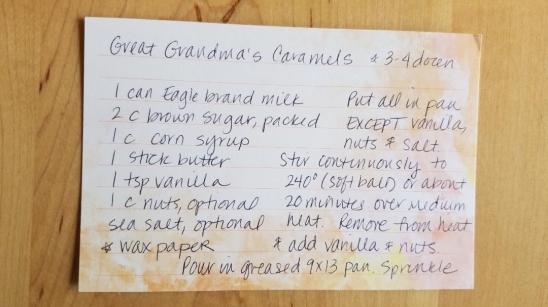 Great Grandma's Caramels * 3-4 dozen
1 can Eagle brand milk
2 c brown sugar, packed
1 c corn syrup
1 stick butter
1 tsp vanilla
1 c nuts, optional
sea salt, optional
* wax paper
Put all in pan
EXCEPT vanilla,
nuts * salt.
Stir continuously to
240° (soft ball) or about
20 minutes over medium
heat. Remove from heat
* add vanilla * nuts.
Pour in greased 9x13 pan. Sprinkle